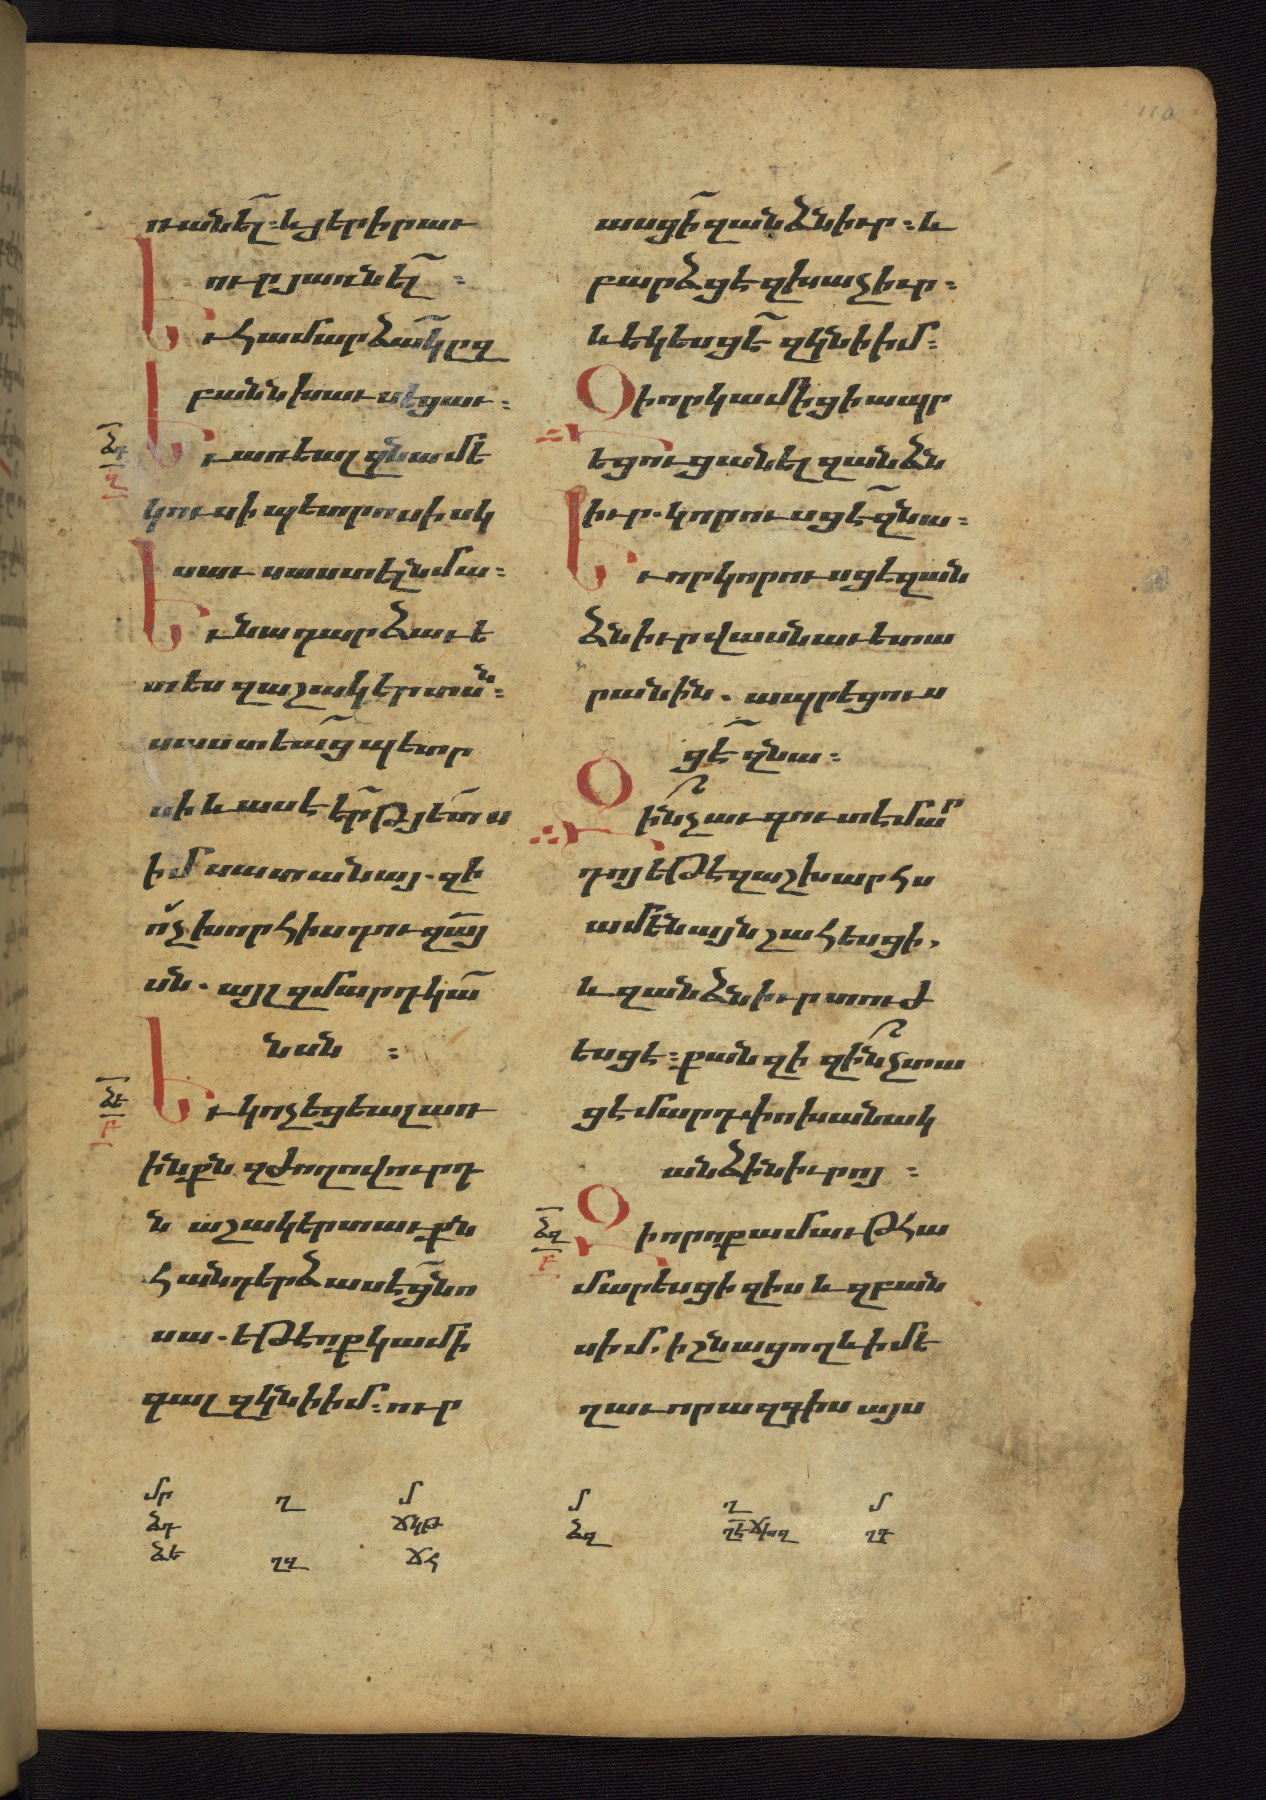 ուանել̃։ և յերիր աւ
ուր յառնել̃։
Եւ համարձակ̃ ըզ
բանն խաւսեցաւ։
Եւ առեալ զնա մե
կուսի պետրոսի սկ
սաւ սաստել նմա։
Եւ նա դարձաւ ե
տես զաշակերտսն։
սաստեաց̃ պետր
սի և ասէ եր̃թ յետ̃ս
իմ սատանայ. զի
ո՛չ խորհիս դու զա̃յ
սն. այլ զմարդկա̃
նսն։
Եւ կոչեցեալ առ
ինքն զժողովուրդ
ն աշակերտաւքն
հանդերձ ասէ ց̃նո
սա. եթե ոք կամի
գալ զկնի իմ։ ուր
ասցի̃ զանձն իւր։ և
բարձցէ զխաչ իւր։
և եկեսցէ̃ զկնի իմ։
Զի որ կամիցի ապր
եցուցանել զանձն
իւր. կորուսցէ̃ զնա։
Եւ որ կորուսցէ զան
ձն իւր վասն աւետա
րանին. ապրեցուս
ցէ̃ զնա։
Զինչ աւգուտ է մար
դոյ եթէ զաշխարհս
ամենայն շահեսցի,
և զանձն իւր տուժ
եսցէ։ քանզի զինչ տա
ցէ մարդ փոխանակ
անձին իւրոյ։
Զի որ ոք ամաւթ հա
մարեսցի զիս և զբան
ս իմ. ի շնացող և ի մե
ղաւոր ազգիս այս
ձդ
ղ
ձե
բ
ձզ
բ
մր ղ մ
ձդ ճկթ
ձե ղզ ճհ
մ ղ մ
ձզ ղդ